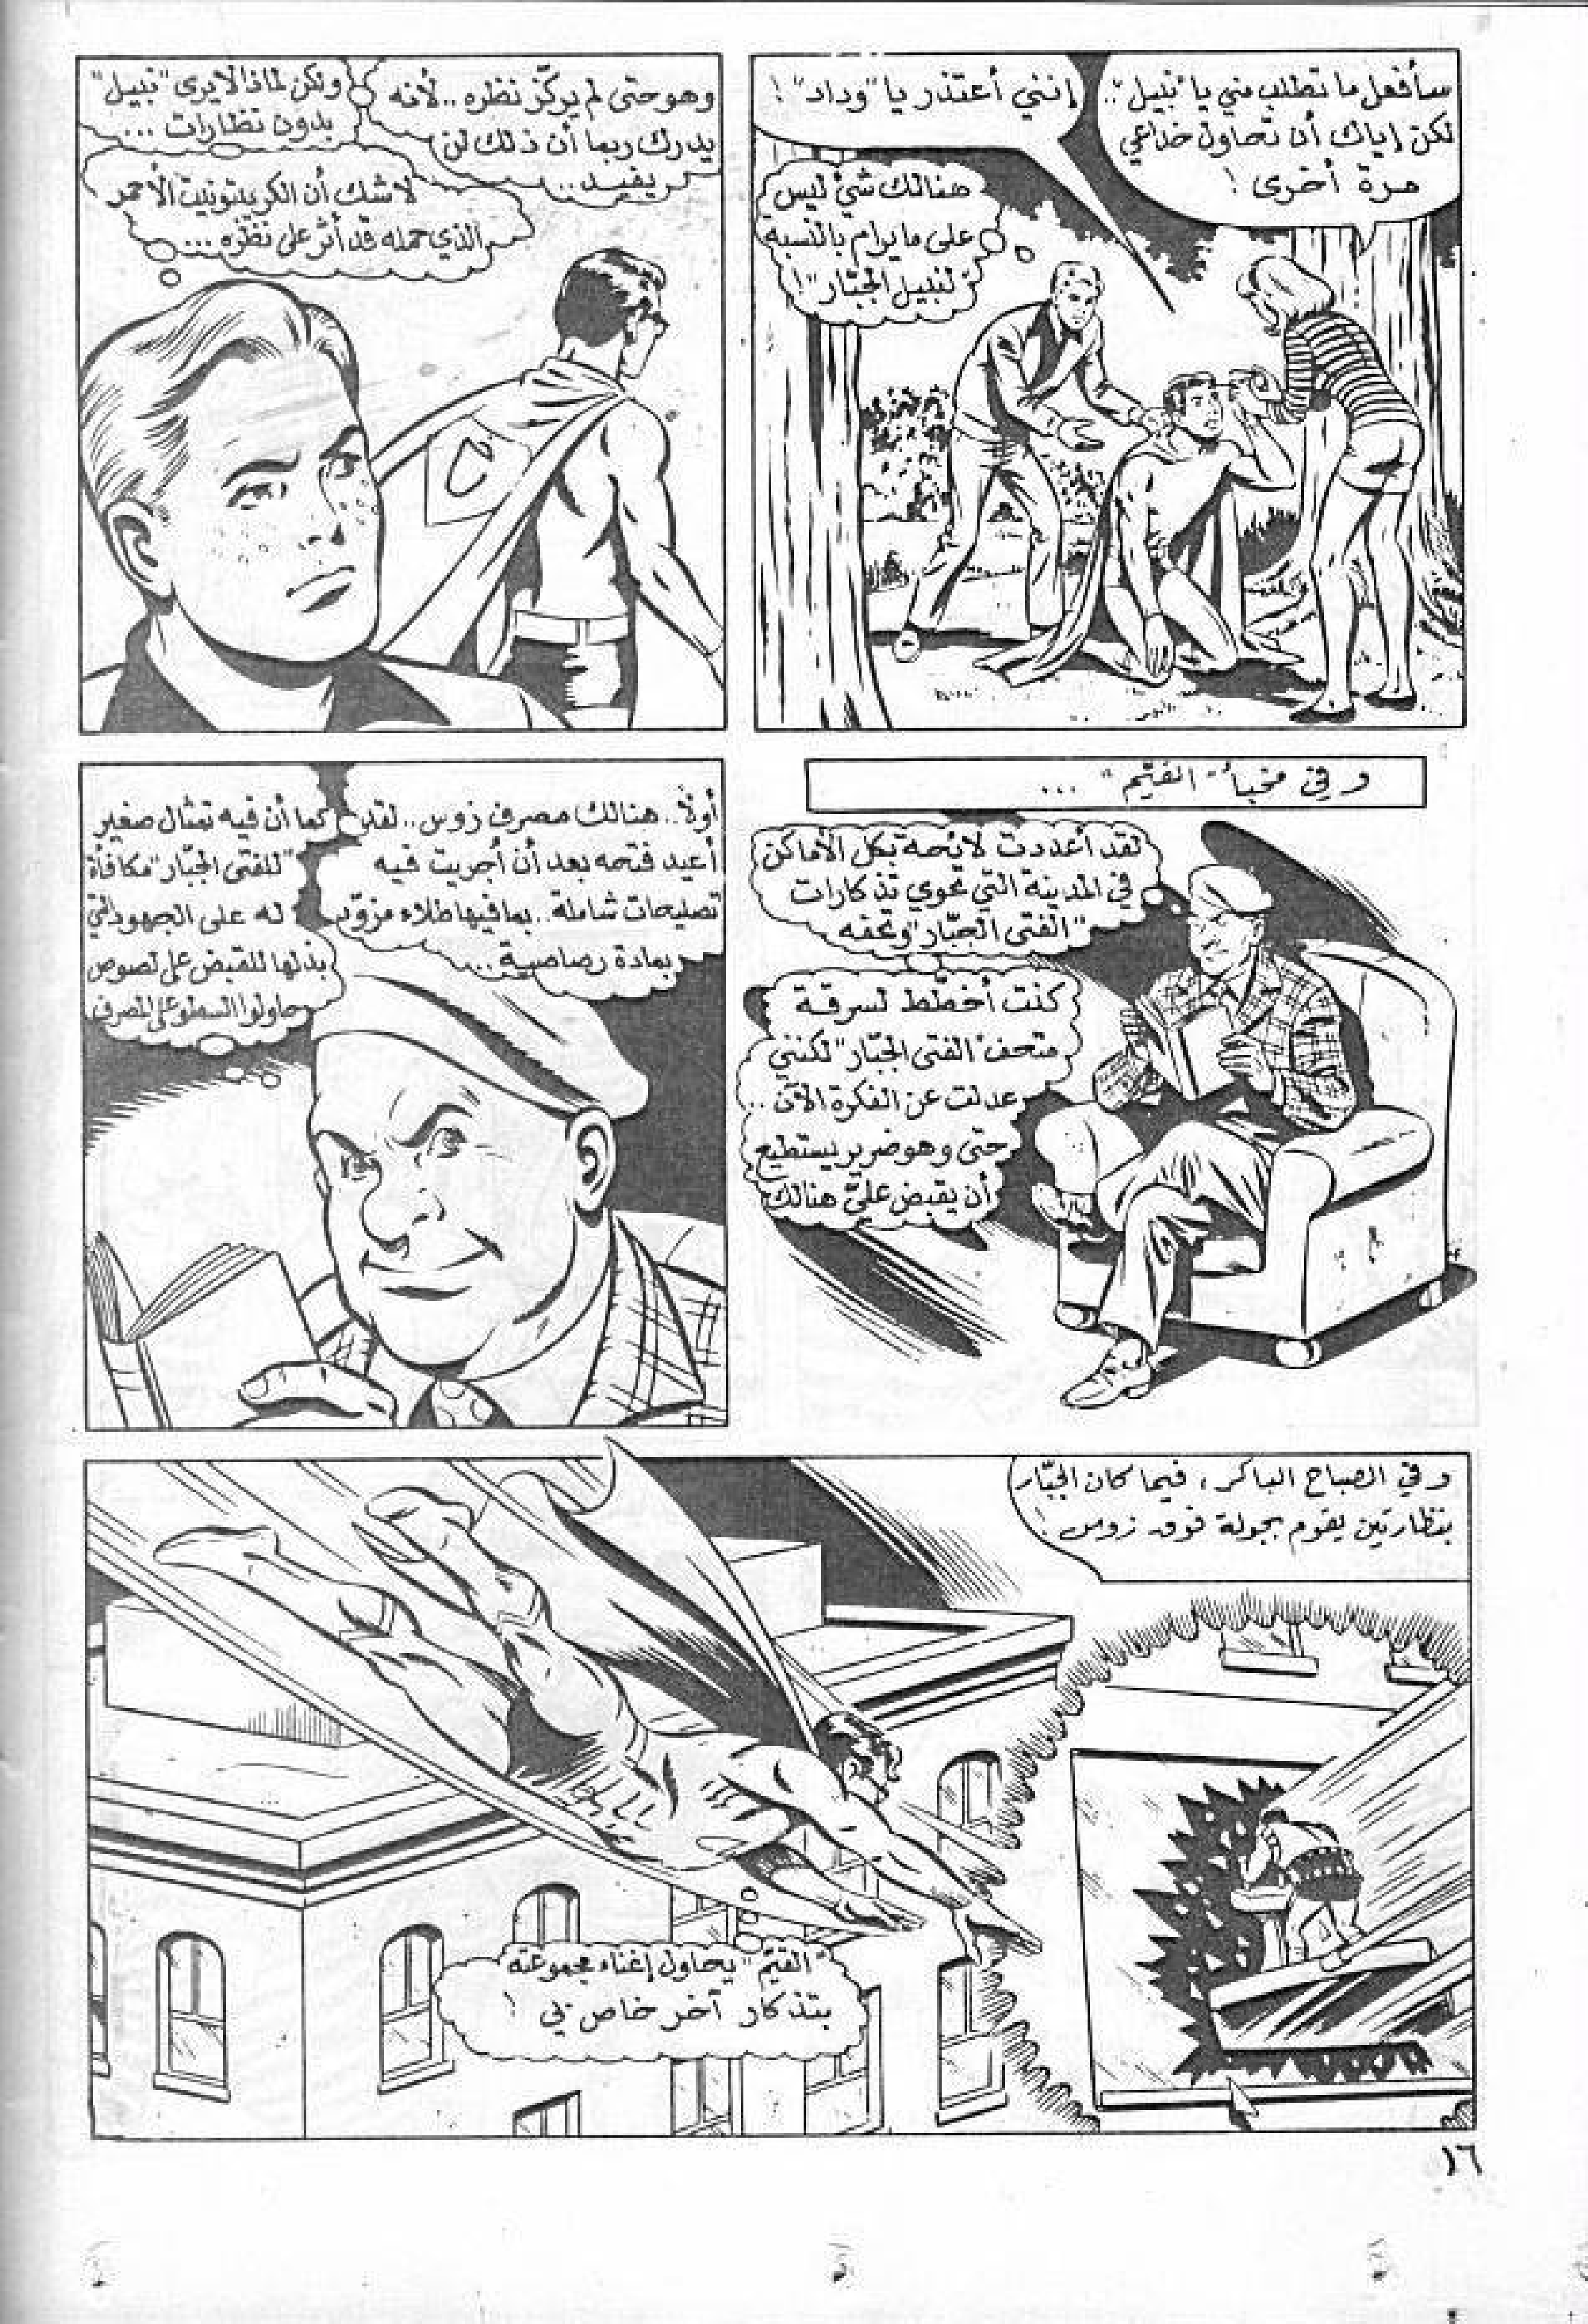 سأفعل ما تطلب مني يا "نبيل"..
لكن إياك أن تحاول خداعي
مرة أخرى !
إنني أعتذر يا "وداد" !
هنالك شيٌ ليس
على ما يرام بالنسبة
لنبيل الجبّار" !
وهو حتى لم يركّز نظره .. لأنه
يدرك ربما أن ذلك لن
يفيد ..
ولكن لماذا لا يرى "نبيل"
بدون نظارات ...
لا شك أن الكريبتونيت الأحمر
الذي حمله قد أثر على نظره ...
و في مخبأ "القيّم" ...
لقد أعددت لائحة بكل الأماكن
في المدينة التي تحوي تذكارات
"الفتى الجبّار" وتحفه
كنت أخطّط لسرقة
متحف "الفتى الجبّار" لكنني
عدلت عن الفكرة الآن ..
حتى وهو ضرير يستطيع
أن يقبض عليّ هنالك
أولًا .. هنالك مصرف زوس .. لقد
أعيد فتحه بعد أن أجريت فيه
تصليحات شاملة .. بما فيها طلاء مزوّد
بمادة رصاصية ...
كما أن فيه تمثال صغير
"للفتى الجبّار" مكافأة
له على الجهود التي
بذلها للقبض على لصوص
حاولوا السطو على المصرف
و في الصباح الباكر ، فيما كان الجبّار
بنظارتين يقوم بجولة فوق زوس !
"القيّم" يحاول إغناء مجموعته
بتذكار آخر خاص بي !
١٦